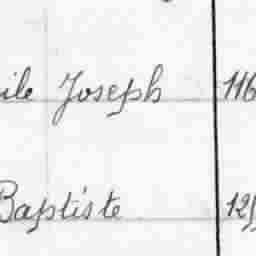 ile Joseph 116
Baptiste 125